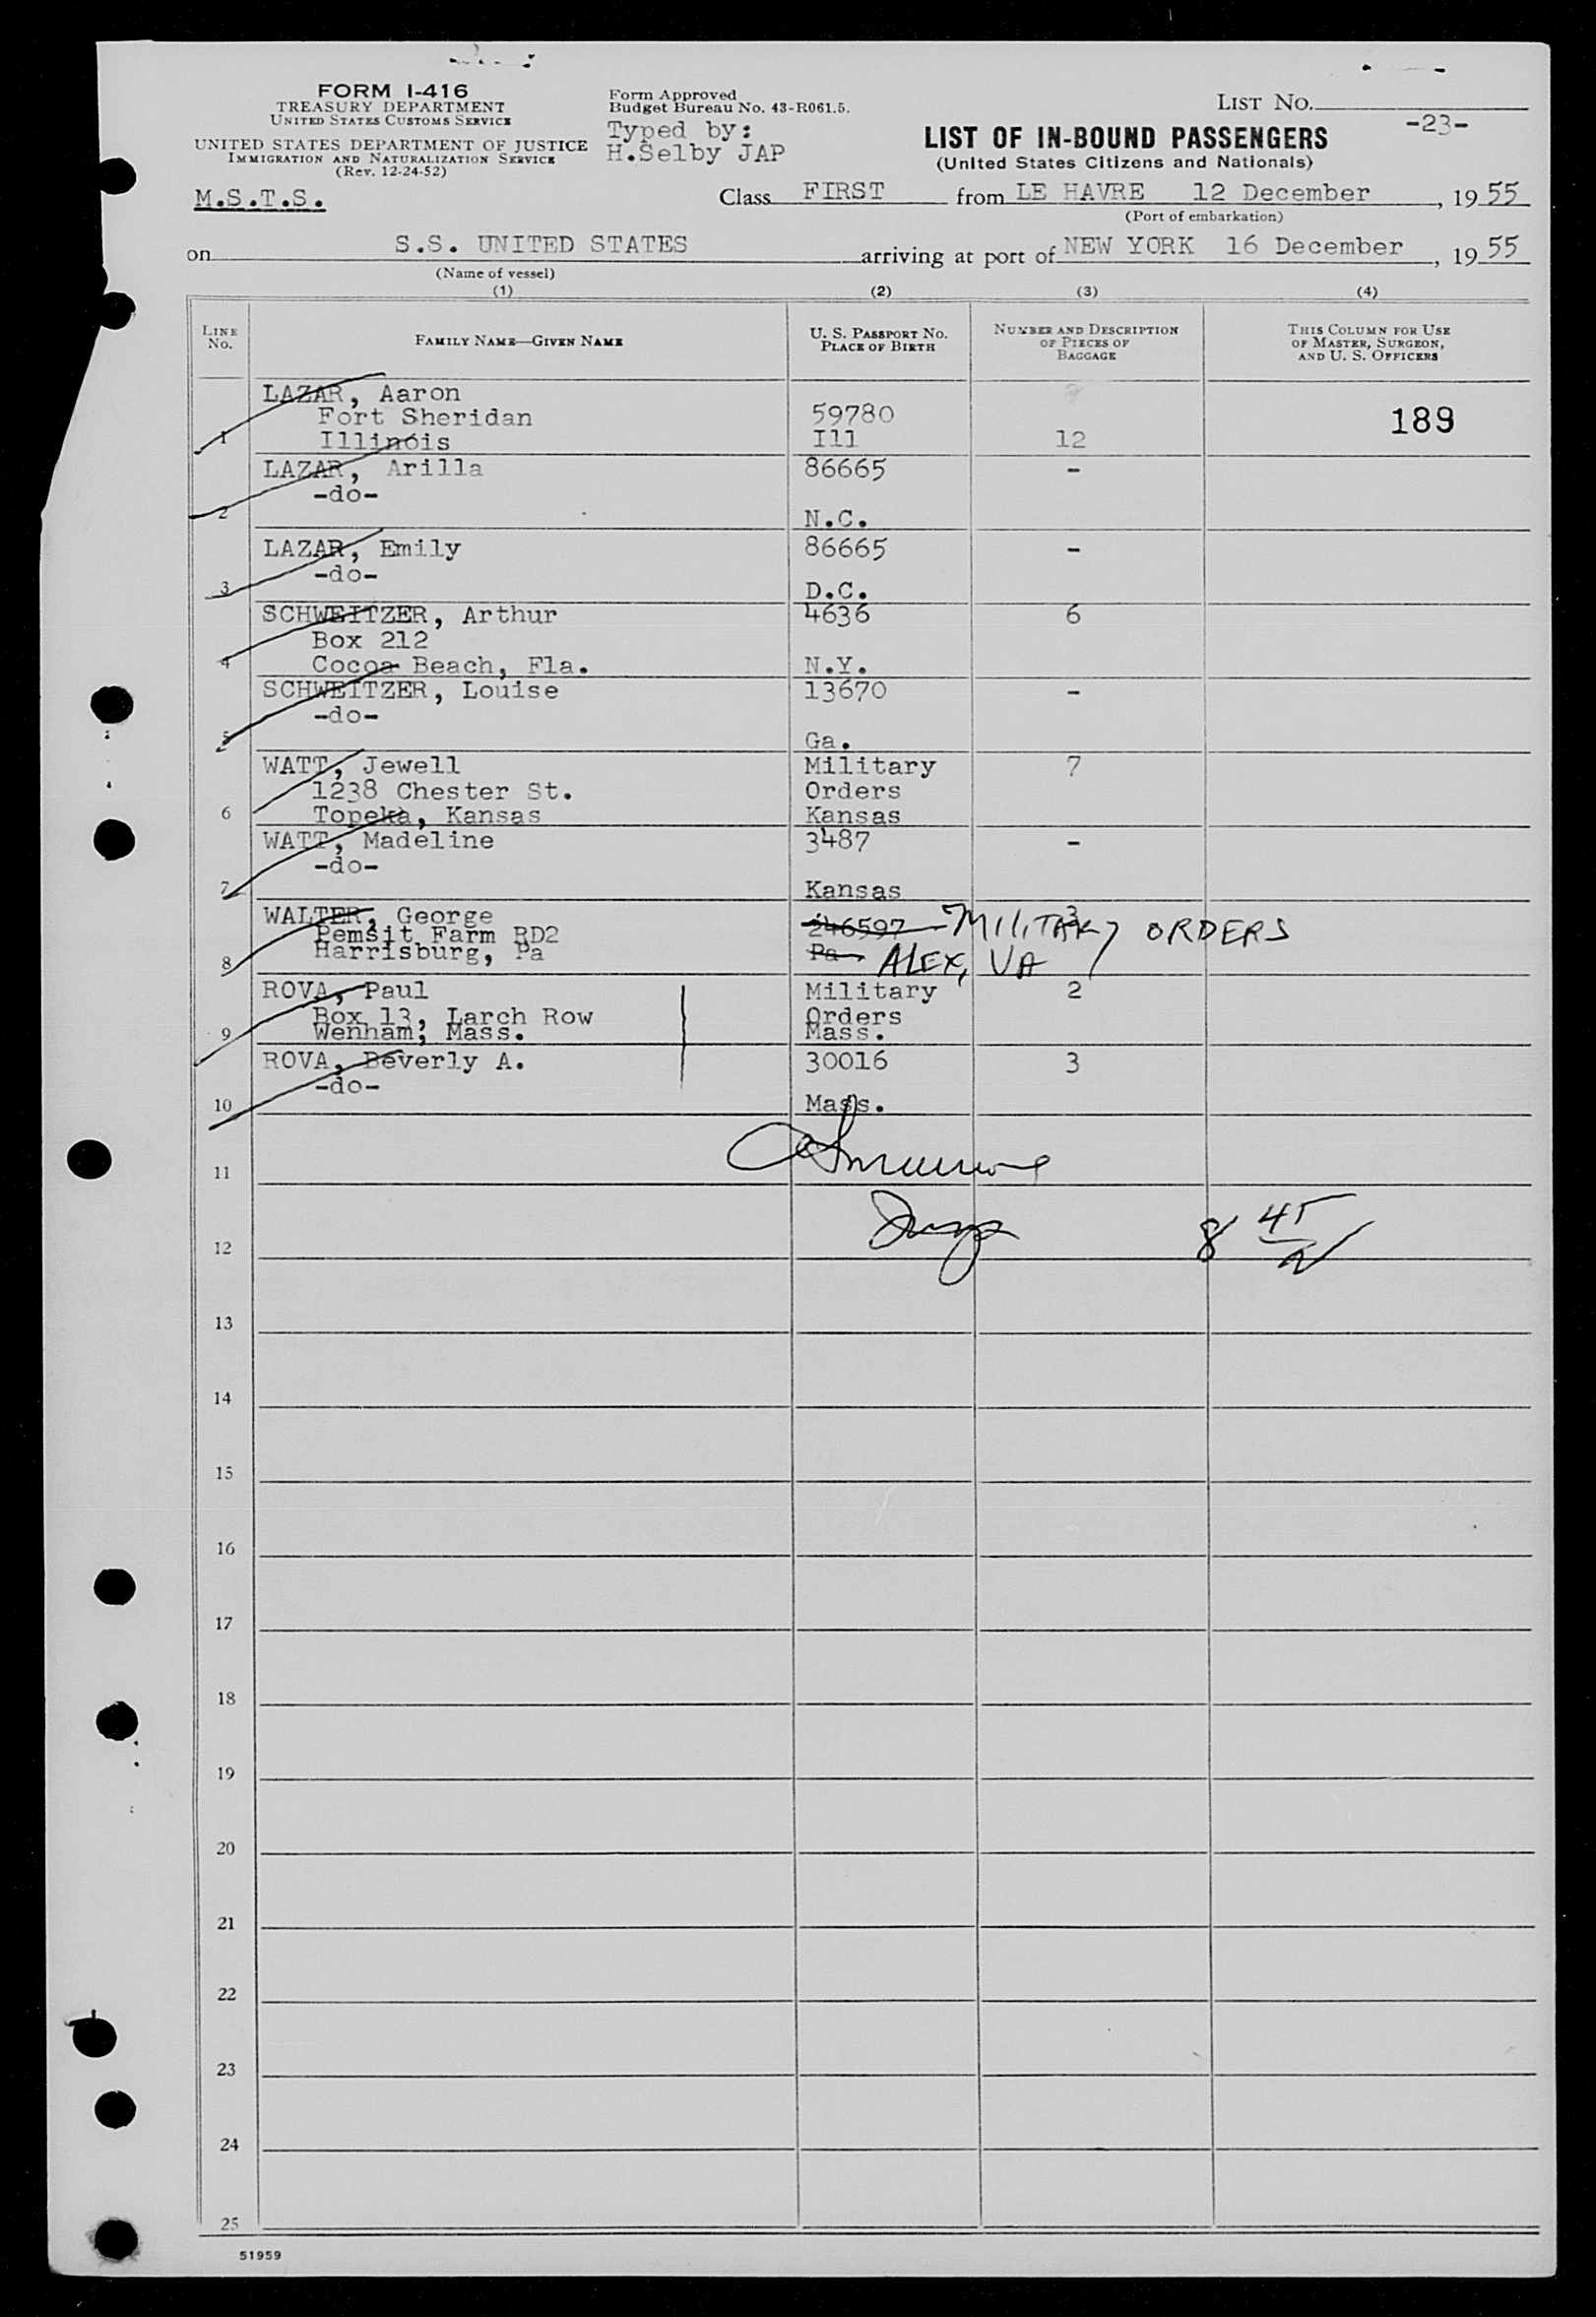 FORM I-416
TREASURY DEPARTMENT
UNITED STATES CUSTOMS SERVICE
UNITED STATES DEPARTMENT OF JUSTICE
IMMIGRATION AND NATURALIZATION SERVICE
(Rev. 12-24-52)
Form Approved
Budget Bureau No. 43-R061.5.
Typed by:
H.Selby JAP
LIST NO.
-23-
LIST OF IN-BOUND PASSENGERS
(United States Citizens and Nationals)
M.S.T.S.
Class FIRST from LE HAVRE 12 December, 1955
(Port of embarkation)
on S.S. UNITED STATES arriving at port of NEW YORK 16 December, 1955
(Name of vessel)
(1) (2) (3) (4)
LINE NO.
FAMILY NAME—GIVEN NAME
U. S. PASSPORT NO.
PLACE OF BIRTH
NUMBER AND DESCRIPTION
OF PIECES OF
BAGGAGE
THIS COLUMN FOR USE
OF MASTER, SURGEON,
AND U. S. OFFICERS
LAZAR, Aaron
Fort Sheridan 59780 189
1 Illinois Ill 12
LAZAR, Arilla 86665 -
-do-
2 N.C.
LAZAR, Emily 86665 -
-do-
3 D.C.
SCHWEITZER, Arthur 4636 6
Box 212
4 Cocoa Beach, Fla. N.Y.
SCHWEITZER, Louise 13670 -
-do-
5 Ga.
WATT, Jewell Military 7
1238 Chester St. Orders
6 Topeka, Kansas Kansas
WATT, Madeline 3487 -
-do-
7 Kansas
WALTER, George 246597 - MILITARY ORDERS 3
Pemsit Farm RD2
8 Harrisburg, Pa Pa ALEX, VA
ROVA, Paul Military 2
Box 13, Larch Row Orders
9 Wenham, Mass. Mass.
ROVA, Beverly A. 30016 3
-do-
10 Mass.
11
12 8 45/2
13
14
15
16
17
18
19
20
21
22
23
24
25
51959